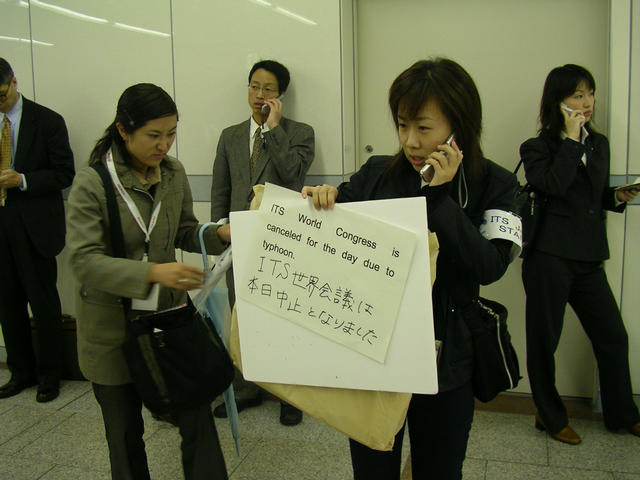 ITS World Congress is
canceled for the day due to
typhoon.
ITS世界会議は
本日中止となりました
ITS
STA